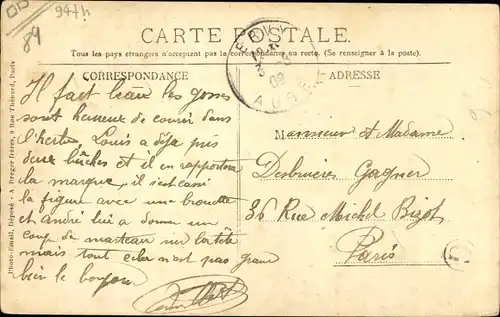 947h
89
CARTE POSTALE.
Tous les pays étrangers n'acceptent pas la correspondance au recto. (Se renseigner à la poste).
CORRESPONDANCE
Il fait beau les gosses
sont heureux de courir dans
l'herbe, Louis a déja pris
deux bûches et il en rapportera
la marque, il s'est cassé
la figure avec une brouette
et andré lui a donné un
coup de marteau sur la tête
mais tout cela n'est pas grave
bien le bonjour
ADRESSE
Monsieur et Madame
Desbruères Gagner
36 Rue Michel Bizot
Paris
Photo-Email, Déposé - A. Breger frères, 9 Rue Thénard, Paris